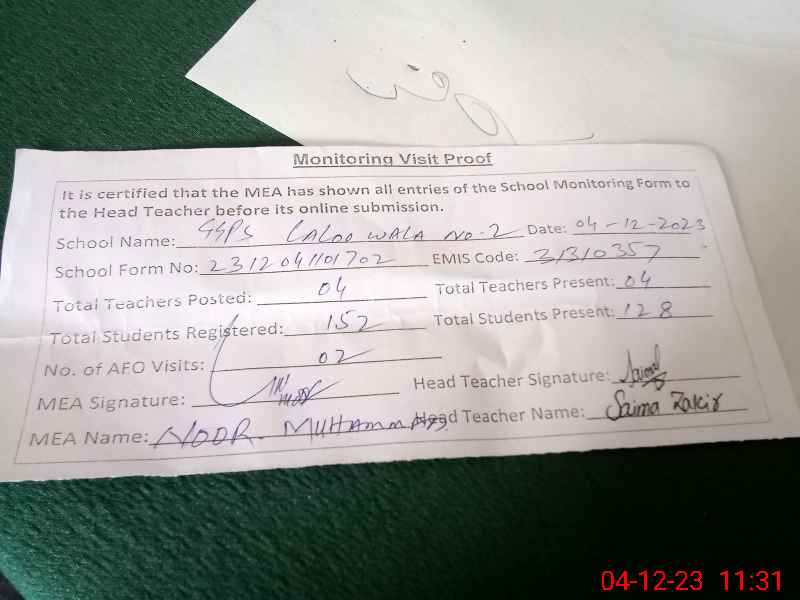 Monitoring Visit Proof
It is certified that the MEA has shown all entries of the School Monitoring Form to
the Head Teacher before its online submission.
School Name: GGPS LALOO WALA NO-2 Date: 04-12-2023
School Form No: 2312041101702 EMIS Code: 31310357
Total Teachers Posted: 04 Total Teachers Present: 04
Total Students Registered: 152 Total Students Present: 128
No. of AEO Visits: 02
MEA Signature: Head Teacher Signature: Saima
MEA Name: NOOR MUHAMMAD Head Teacher Name: Saima Zakir
04-12-23 11:31